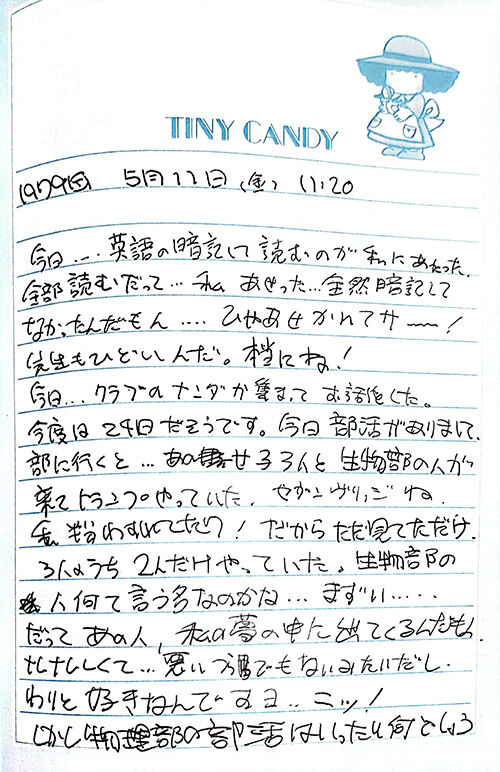 TINY CANDY
1979(日) 5月11日(金) 11:20
今日... 英語の暗記して読むのが私にあたった。
全部読むだって... 私あせった...全然暗記して
なかったんだもん.... ひやあせかれてサ〜〜!
先生もひどいんだ。本当にね!
今日... クラブのナンダか集まってお話をした。
今度は24日だそうです。今日部活がありまして、
部に行くと... 女子3人と生物部の人が
来てトランプやっていた。セブンブリッジね。
私、わすれてたの! だからただ見てただけ。
3人のうち2人だけやっていた。生物部の
人何て言う名なのかな... まずい.....
だってあの人、私の夢の中に出てくるんだもん
たくましくて... 悪いヤツでもないみたいだし、
わりと好きなんですヨ.. ニッ!
しかし物理部の部活はいったい何でしょう